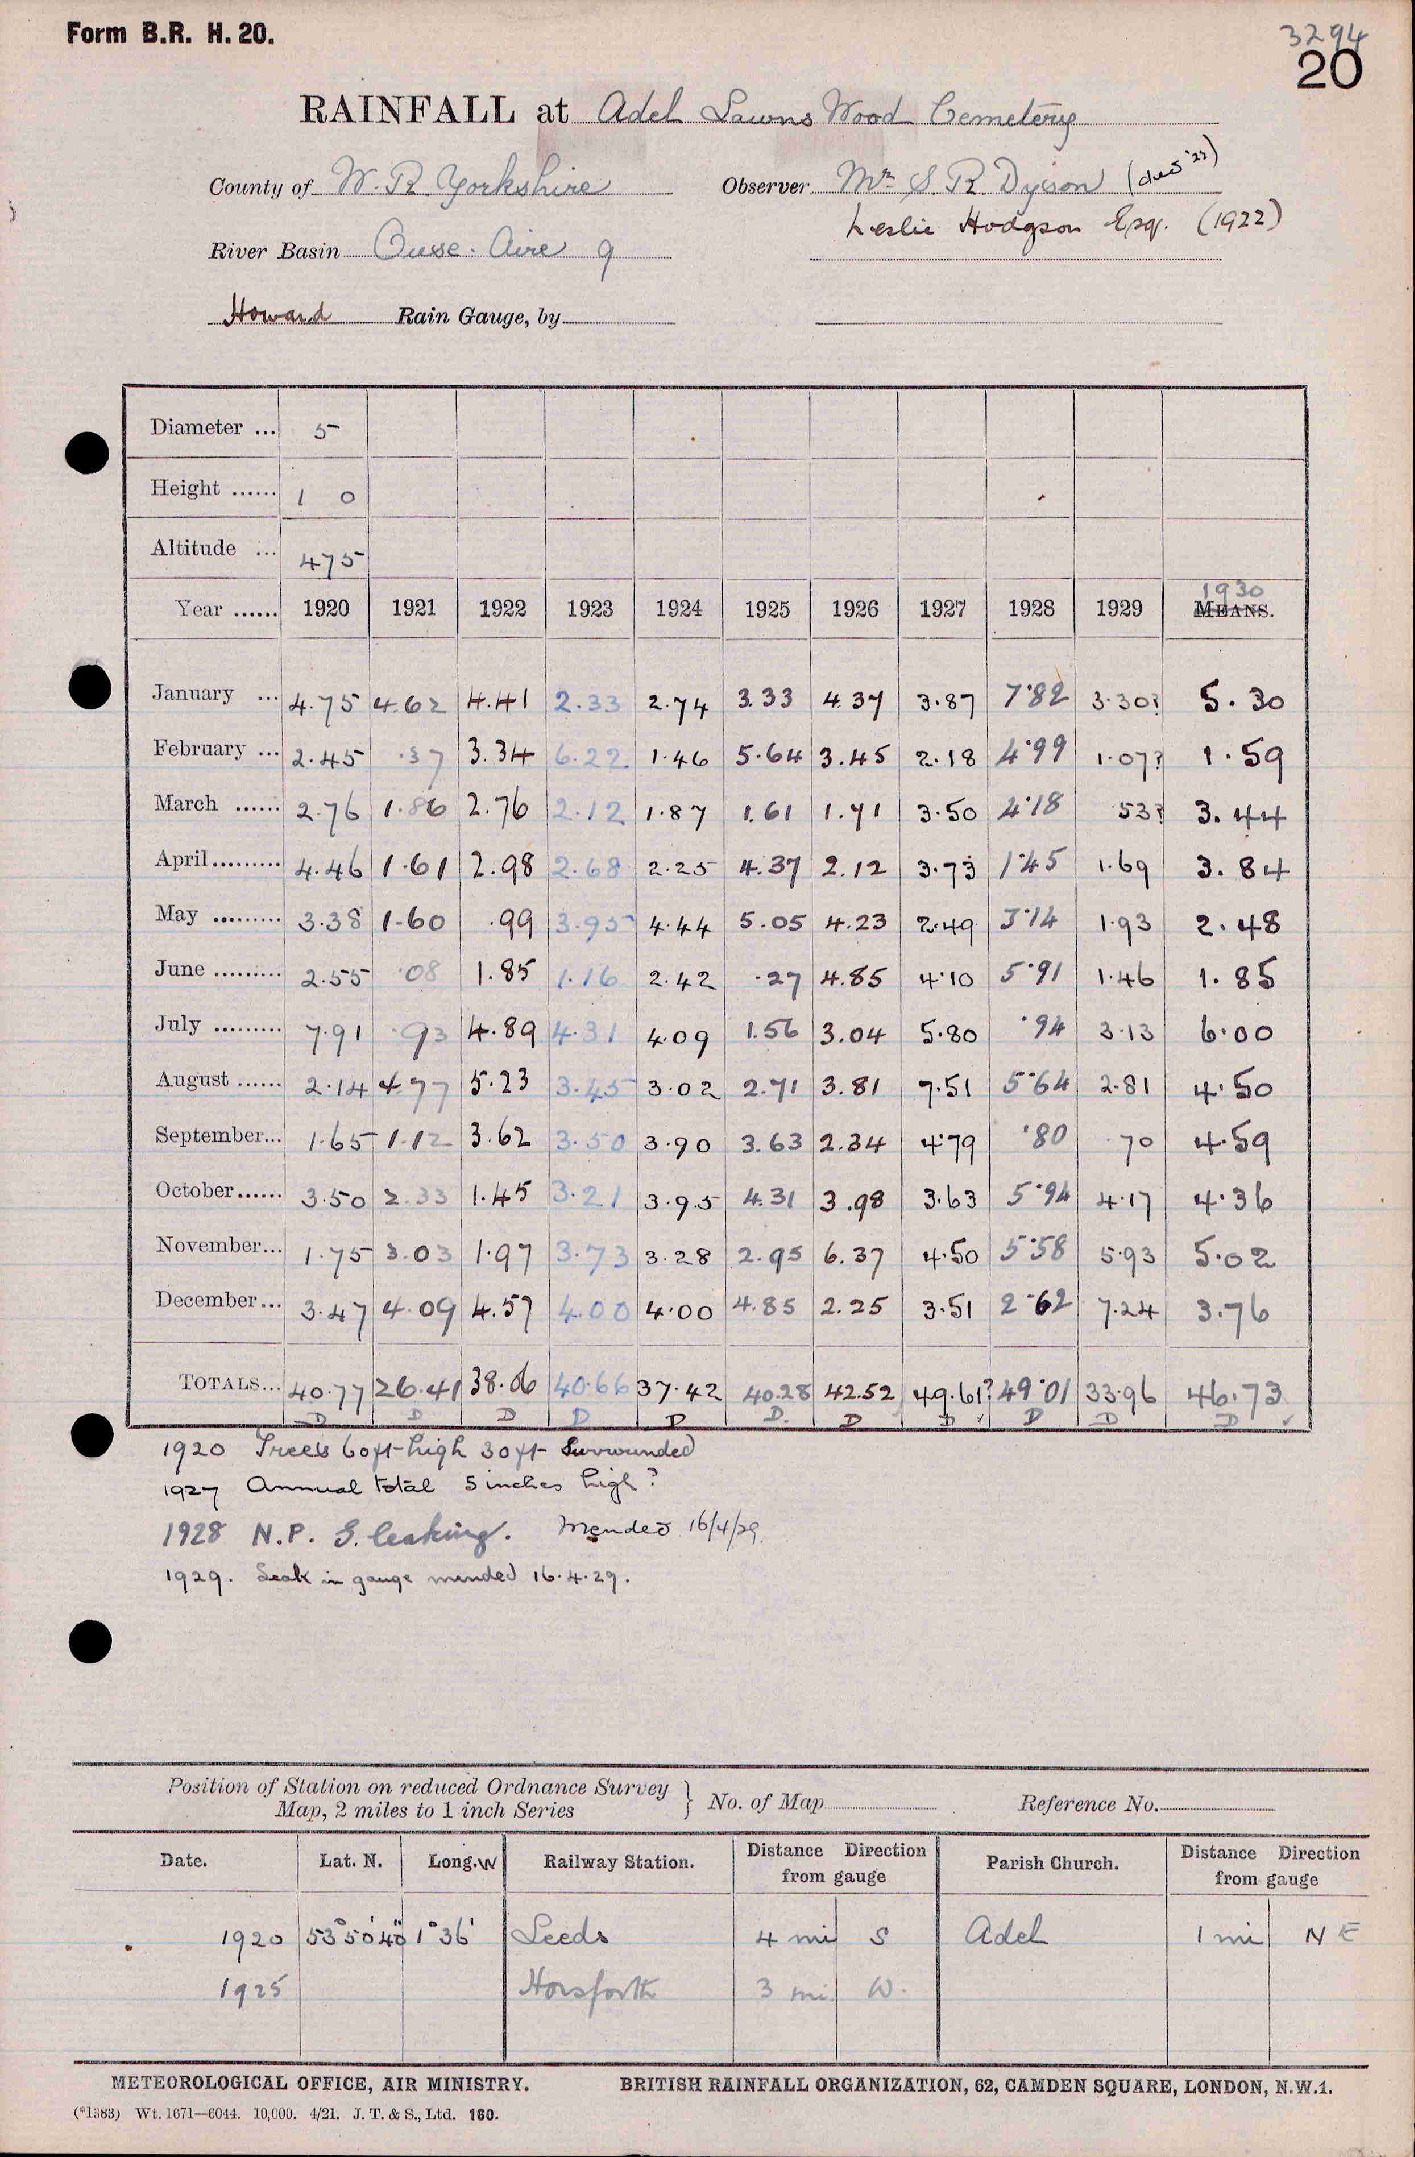 Form B.R. H. 20.
3294
20
RAINFALL at Adel Lawns Wood Cemetery
County of W. R. Yorkshire Observer. Mr. S. R. Dyson (died '22)
Leslie Hodgson Esq. (1922)
River Basin Ouse. Aire 9
Howard Rain Gauge, by
Diameter ... 5
Height ...... 1 0
Altitude ... 475
Year ...... 1920 1921 1922 1923 1924 1925 1926 1927 1928 1929 1930 MEANS.
January ... 4.75 4.62 4.41 2.33 2.74 3.33 4.37 3.87 7.82 3.30? 5.30
February ... 2.45 .37 3.34 6.22 1.46 5.64 3.45 2.18 4.99 1.07? 1.59
March ...... 2.76 1.86 2.76 2.12 1.87 1.61 1.71 3.50 2.18 .53? 3.44
April ......... 4.46 1.61 2.98 2.68 2.25 4.37 2.12 3.73 1.45 1.69 3.84
May ......... 3.38 1.60 .99 3.95 4.44 5.05 4.23 2.49 3.14 1.93 2.48
June ......... 2.55 .08 1.85 1.16 2.42 .27 4.85 4.10 5.91 1.46 1.85
July ......... 7.91 .93 4.89 4.31 4.09 1.56 3.04 5.80 .94 3.13 6.00
August ...... 2.14 4.77 5.23 3.45 3.02 2.71 3.81 7.51 5.64 2.81 4.50
September... 1.65 1.12 3.62 3.50 3.90 3.63 2.34 4.79 .80 .70 4.59
October...... 3.50 2.33 1.45 3.21 3.95 4.31 3.98 3.63 5.94 4.17 4.36
November... 1.75 3.03 1.97 3.73 3.28 2.95 6.37 4.50 5.58 5.93 5.02
December... 3.47 4.09 4.57 4.00 4.00 4.85 2.25 3.51 2.62 7.24 3.76
TOTALS... 40.77 26.41 38.06 40.66 37.42 40.28 42.52 49.61? 49.01 33.96 46.73
D D D D D D D D ✓ D D D ✓
1920 Trees 60ft high 30ft surrounded
1927 Annual total 5 inches high?
1928 N.P. G. leaking. Mended 16/4/29.
1929. Leak in gauge mended 16.4.29.
Position of Station on reduced Ordnance Survey
Map, 2 miles to 1 inch Series } No. of Map Reference No.
Date. Lat. N. Long. W Railway Station. Distance Direction from gauge Parish Church. Distance Direction from gauge
1920 53° 50' 40" 1° 36' Leeds 4 mi S Adel 1 mi N E
1925 Horsforth 3 mi. W.
METEOROLOGICAL OFFICE, AIR MINISTRY. BRITISH RAINFALL ORGANIZATION, 62, CAMDEN SQUARE, LONDON, N.W.1.
(*1383) Wt. 1671—6044. 10,000. 4/21. J. T. & S., Ltd. 160.